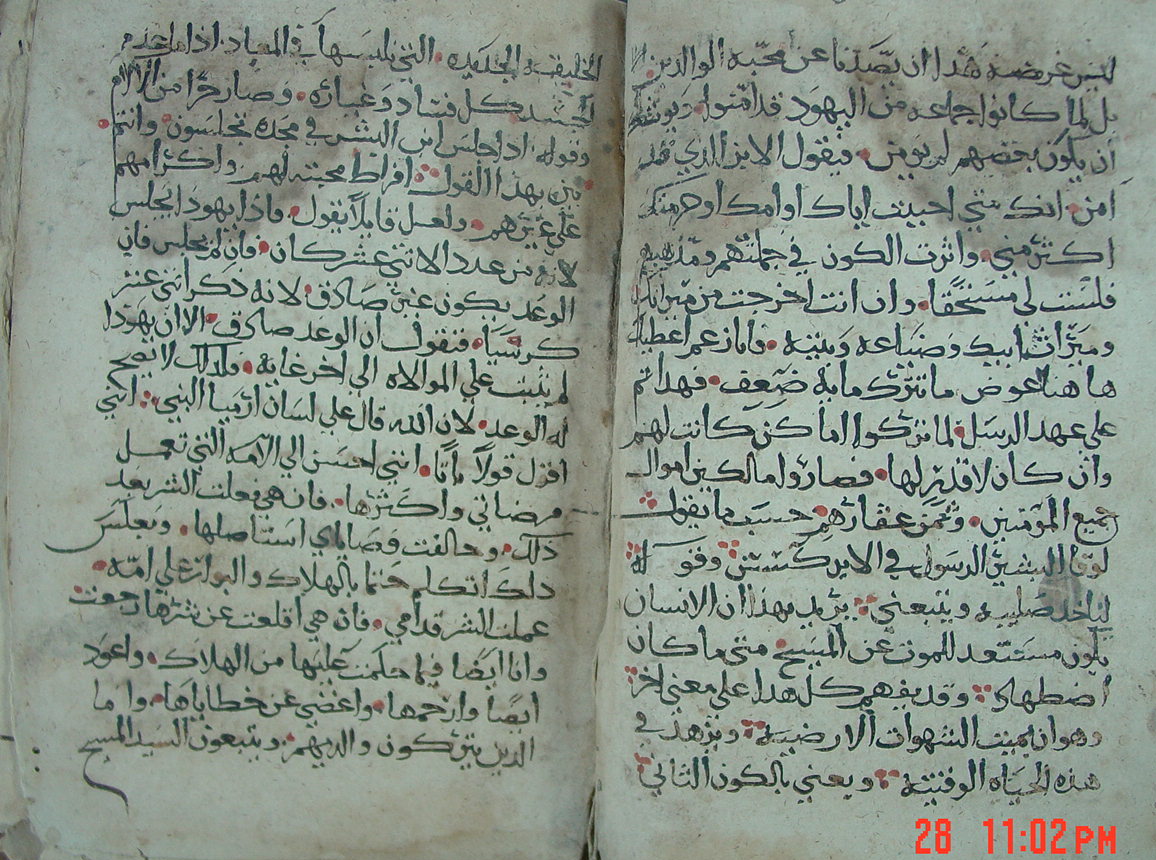 ليس غرضه هذا ان يصدنا عن محبة الوالدين لا
بل لما كانوا جماعه من اليهود قد امنوا
ان يكون بعضهم لم يومن فيقول الابن الذي قد
امن انك متي احببت اباك او امك او حرمتك
اكثر مني واثرت الكون في جملتهم ومذهبهم
فلست لي مستحقا وان انت اخرجت من ميراثك
وميراث ابيك وضياعه وبيته فانا زعم اعطيك
ها هنا عوض ما تتركه مايه ضعف فهدا تم
علي عهد الرسل لما تركوا اماكن كانت لهم
وان كان لا قدر لها فصاروا مالكين اموال
جميع المومنين وثمن عقارهم حسب ما يقول
لوقا البشير الرسول في الابركسس وقوله
لياخد صليبه ويتبعني يريد بهذا ان الانسان
يكون مستعد للموت عن المسيح متي ما كان
اضطهاد وقد يفهم كل هذا علي معني اخر
وهو ان يميت الشهوات الارضيه ويزهد في
هذه الحياه الوقتيه ويعني بالكون الثاني
الخليقه الجديده التي يلبسها في المعاد اذا ما عدم
الجسد كل فساد وغياره وصار حرا من الالام
وقوله اذا جلس ابن البشر في مجده تجلسون وانتم
بين بهذا القول افراط محبته لهم واكرامهم
علي غيرهم ولعل قايلا يقول فاذا يهودا يجلس
لانه من عدد الاثني عشر كان فان لم يجلس فان
الوعد يكون غير صادق لانه ذكر اثني عشر
كرسيا فنقول ان الوعد صادق الا ان يهودا
لم يثبت علي الموالاه الي اخر غايه ولذلك لا يصح
له الوعد لان الله قال علي لسان ارميا النبي انني
اقول قولا باتا انني احسن الي الامه التي تعمل
مرضاتي واكثرها فان هي فعلت الشر بعد
ذلك وخالفت وصاياي استاصلها وبعكس
ذلك اتكلم حتما بالهلاك والبوار علي امه
عملت الشر قدامي فان هي اقلعت عن شرها رجعت
وانا ايضا فيما حكمت عليها من الهلاك واعود
ايضا وارحمها واغضي عن خطاياها واما
الدين يتركون والديهم ويتبعون السيد المسيح
28 11:02 PM